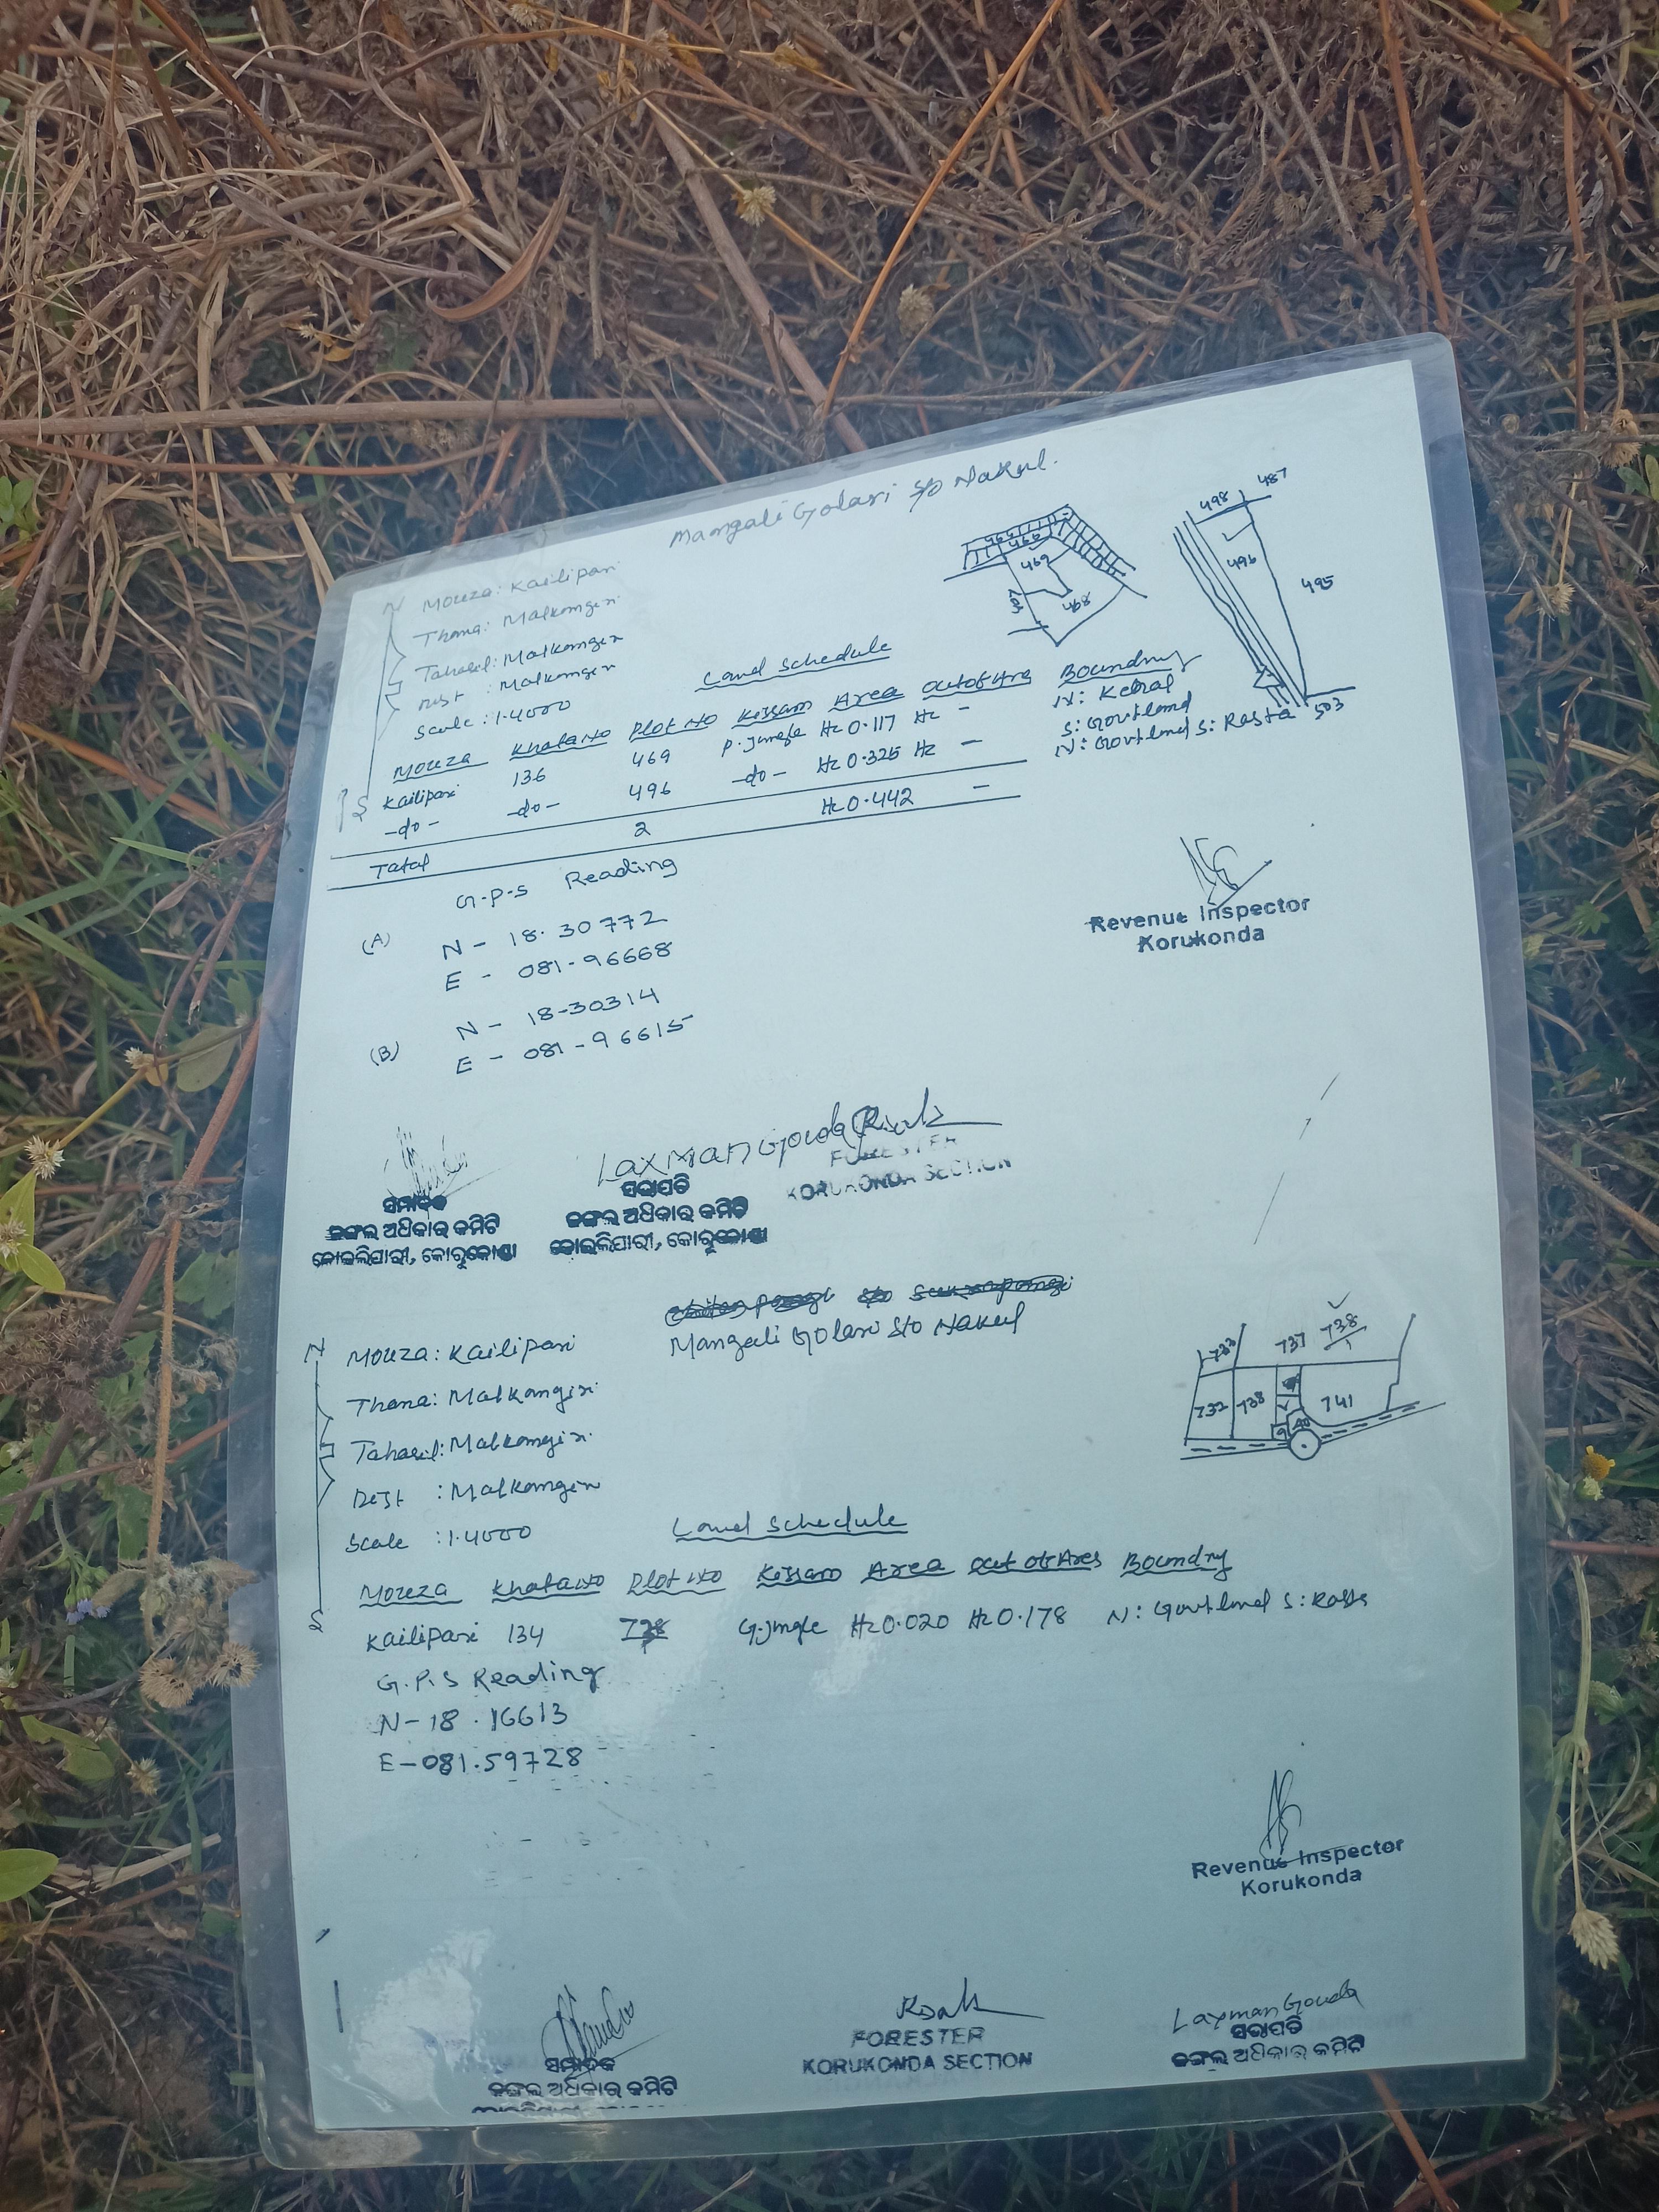 Mangali Golari S/o Nakul.
N
Mouza: Kailipari
Thana: Malkangiri
Tahasil: Malkangiri
Dist : Malkangiri
Scale : 1.4000
S
466
469
468
498 487
496
495
503
Land Schedule
Mouza Khata No Plot No Kissam Area Out of Area Boundry
Kailipari 136 469 P. Jungle Hc 0.117 Hc - N: S: Govt land
-do- -do- 496 -do- Hc 0.325 Hc - N: Govt land S: Rasta
Total 2 Hc 0.442 -
G.P.S Reading
(A) N - 18.30772
E - 081-96668
(B) N - 18-30314
E - 081-96615
Revenue Inspector
Korukonda
ସମ୍ପାଦକ
ଜଙ୍ଗଲ ଅଧିକାର କମିଟି
କୋଇଲିପାରୀ, କୋରୁକୋଣ୍ଡା
Laxman Gouda
ସଭାପତି
ଜଙ୍ଗଲ ଅଧିକାର କମିଟି
କୋଇଲିପାରୀ, କୋରୁକୋଣ୍ଡା
FORESTER
KORUKONDA SECTION
Mangali Golari S/o Nakul
N
Mouza: Kailipari
Thana: Malkangiri
Tahasil: Malkangiri
Dist : Malkangiri
Scale : 1.4000
S
737 738
732 741
Land Schedule
Mouza Khata No Plot No Kissam Area Out of Area Boundry
Kailipari 134 G.Jungle Hc 0.020 Hc 0.178 N: Govt land S: Rasta
G.P.S Reading
N-18.16613
E-081.59728
Revenue Inspector
Korukonda
ସମ୍ପାଦକ
ଜଙ୍ଗଲ ଅଧିକାର କମିଟି
FORESTER
KORUKONDA SECTION
Laxman Gouda
ସଭାପତି
ଜଙ୍ଗଲ ଅଧିକାର କମିଟି